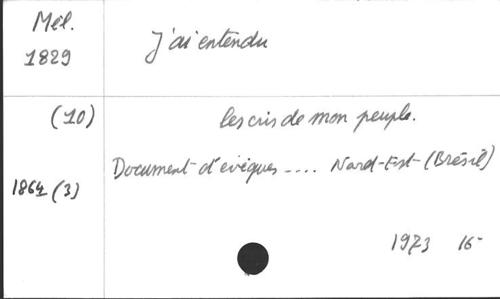 Mel.
1829
J'ai entendu
(10)
les cris de mon peuple.
Document d'evêques .... Nord-Est-(Brésil)
1864 (3)
1973 16-